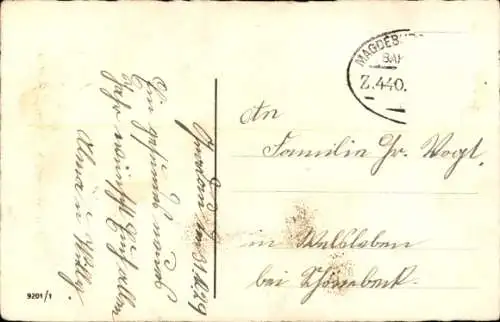 MAGDEB
BA
Z.440.
An
Familie Fr. Vogt,
in Welsleben
bei Schönebeck.
den 31.12.29
Ein gesundes neues
Jahr wünscht Euch allen
Willy
9201/1